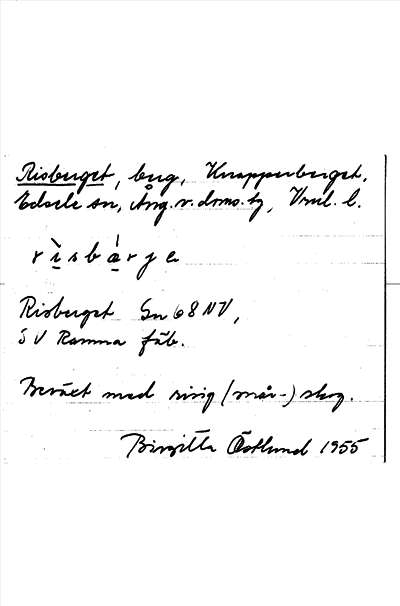 Risberget, berg, Knapperberget,
Edsele sn, Ång. v. doms. tg, Vnl. l.
r ì s b á r j e
Risberget Gn 68 NV,
SV Ramna fäb.
Beväxt med risig (mår-) skog.
Birgitta Östlund 1955